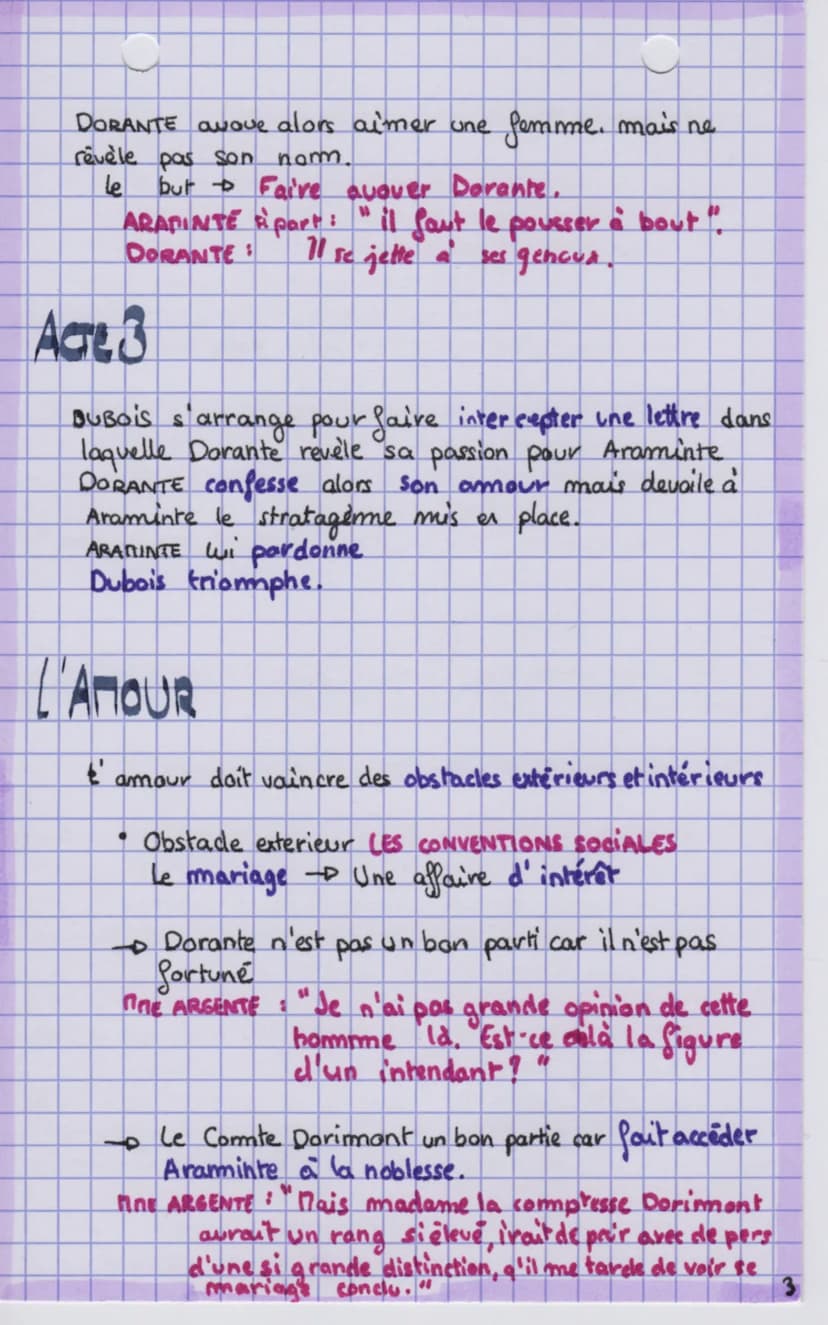 DORANTE avoue alors aimer une femme. mais ne
révèle pas son nom.
le but → Faire avouer Dorante.
ARAMINTE à part : "il faut le pousser à bout".
DORANTE : Il se jette à ses genoux.
Acte 3
DUBOIS s'arrange pour faire intercepter une lettre dans
laquelle Dorante revèle sa passion pour Araminte
DORANTE confesse alors son amour mais devoile à
Araminte le stratagème mis en place.
ARAMINTE lui pardonne
Dubois triomphe.
L'AMOUR
L'amour doit vaincre des obstacles extérieurs et intérieurs
• Obstacle exterieur LES CONVENTIONS SOCIALES
Le mariage → Une affaire d'intérêt
→ Dorante n'est pas un bon parti car il n'est pas
fortuné
MME ARGENTE : "Je n'ai pas grande opinion de cette
homme là. Est-ce là la figure
d'un intendant ? "
→ Le Comte Dorimont un bon partie car fait accéder
Araminte à la noblesse.
MME ARGENTE : "Mais madame la comptesse Dorimont
aurait un rang si élevé, irait de pair avec de pers
d'une si grande distinction, q'il me tarde de voir se
mariage conclu."
3